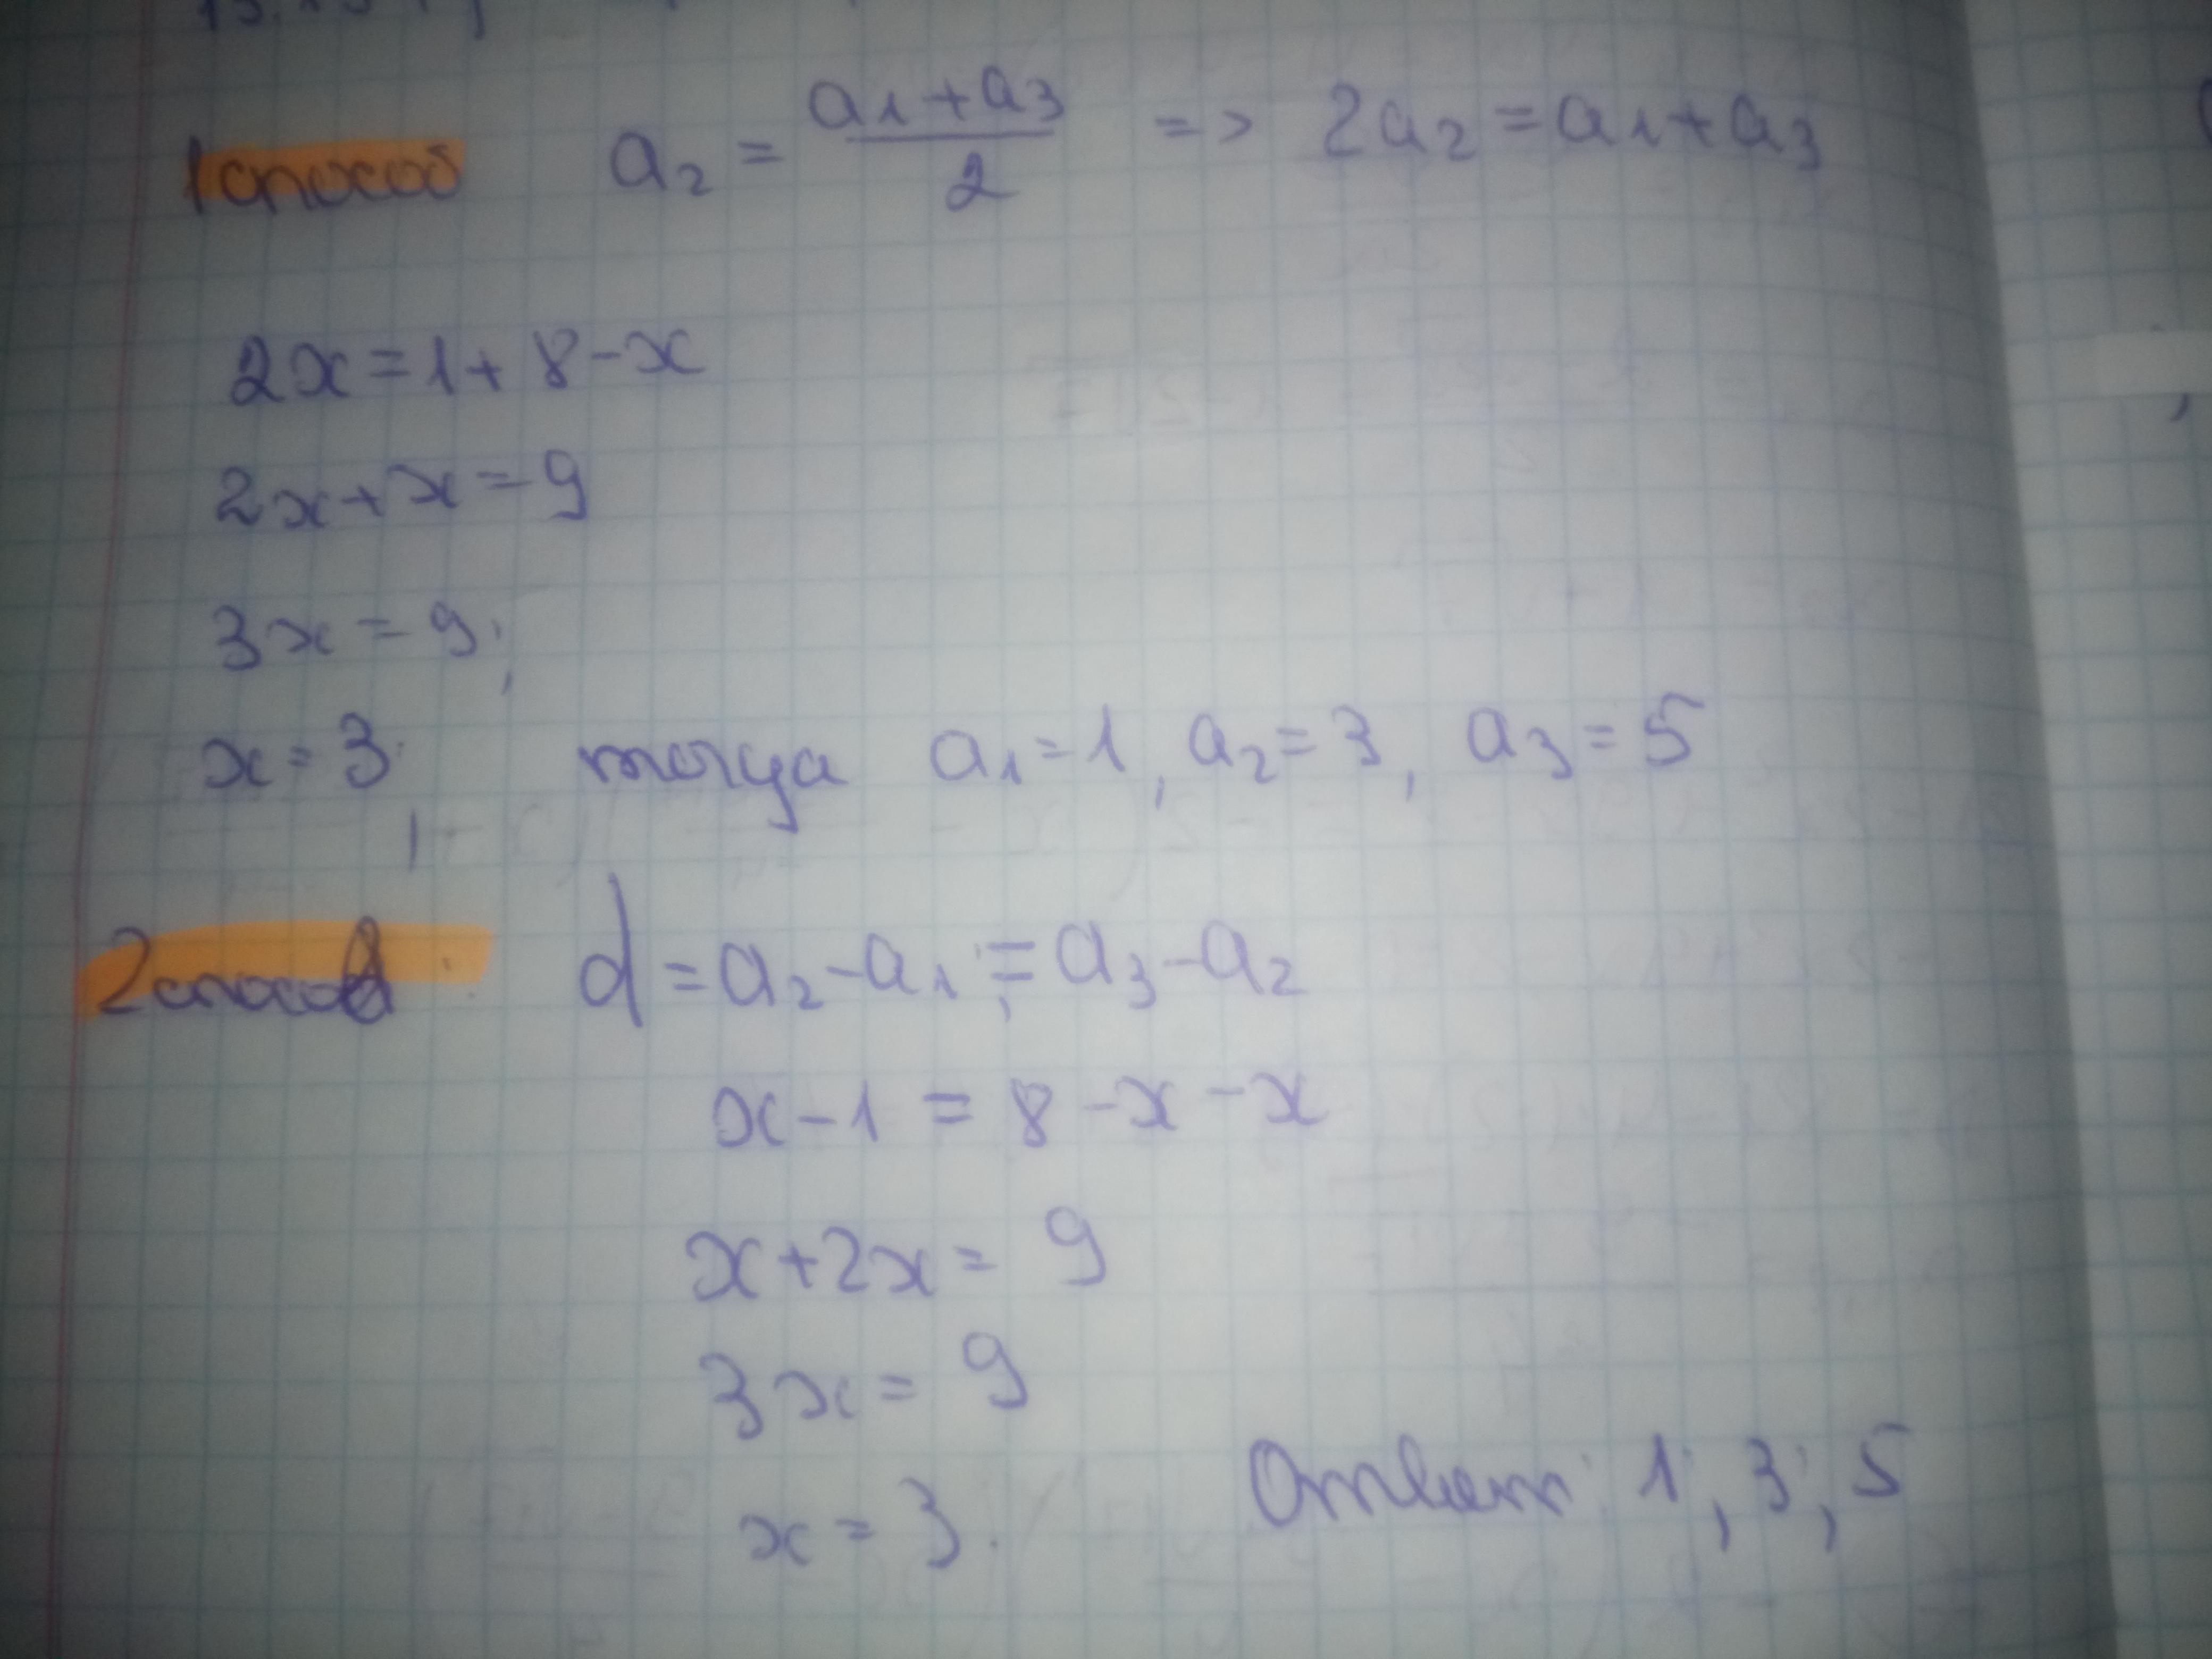 1 способ a₂ = (a₁+a₃)/2 => 2a₂ = a₁+a₃
2x = 1 + 8 - x
2x + x = 9
3x = 9;
x = 3; тогда a₁ = 1, a₂ = 3, a₃ = 5
2 способ. d = a₂ - a₁; = a₃ - a₂
x - 1 = 8 - x - x
x + 2x = 9
3x = 9
x = 3. Ответ: 1; 3; 5